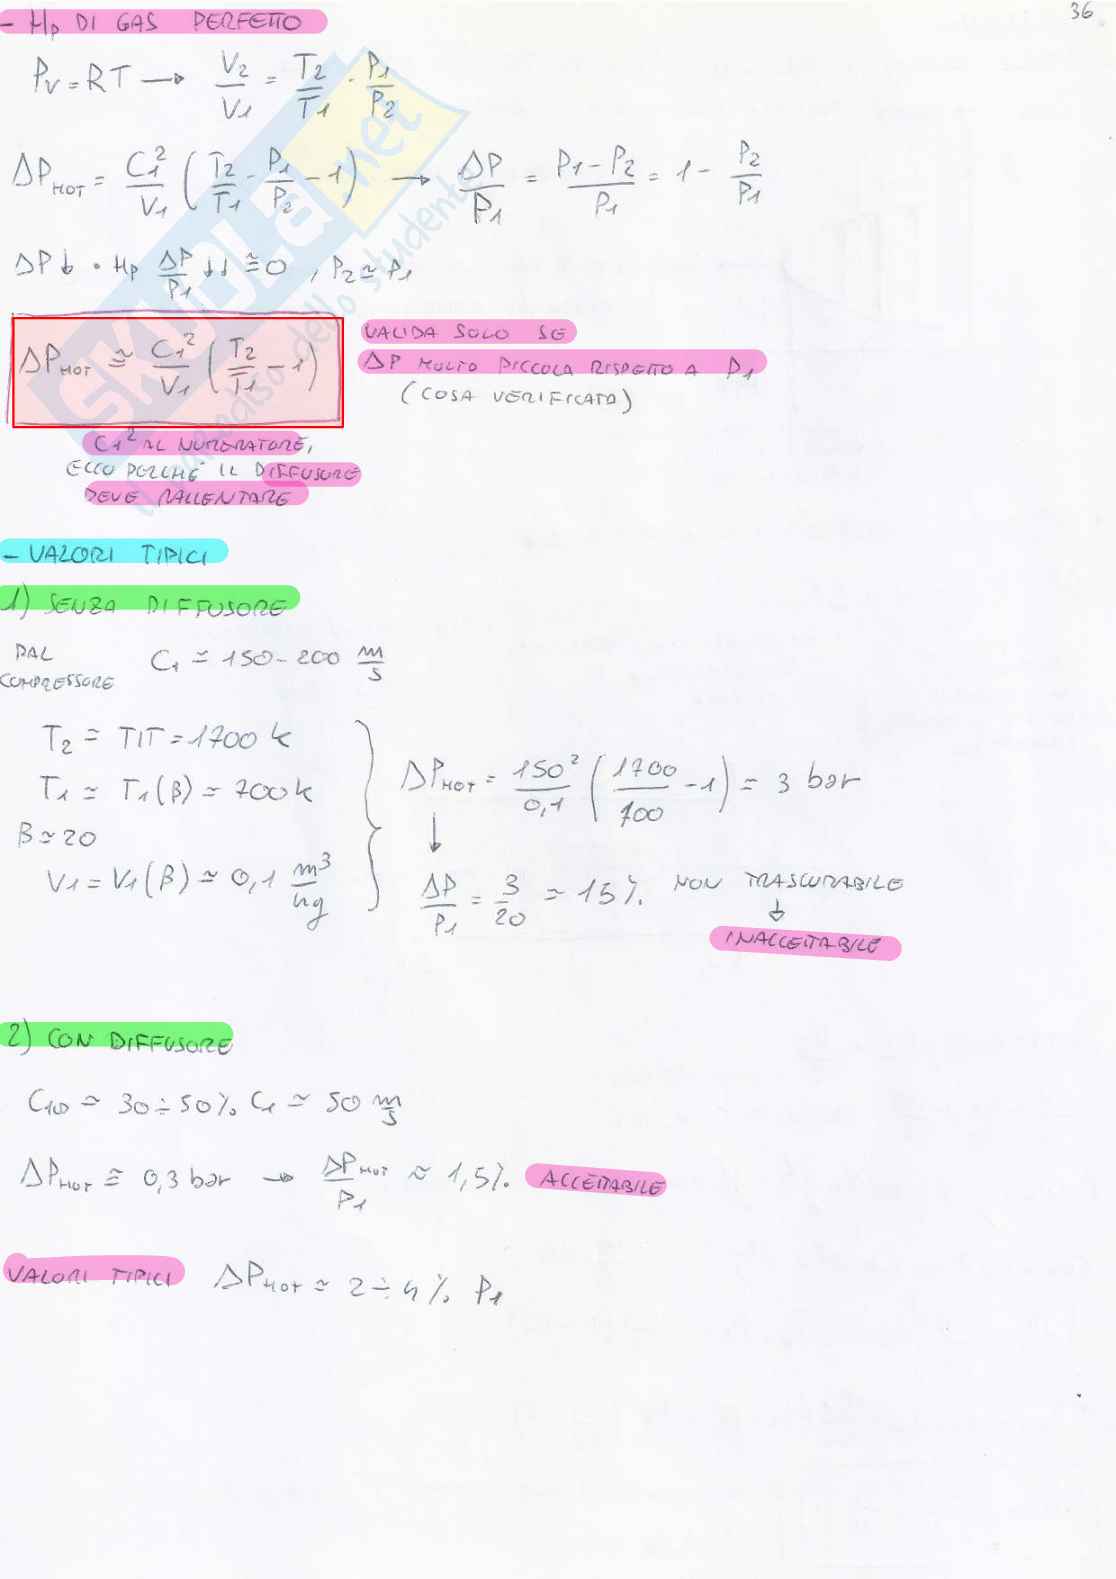 36
- Hp DI GAS PERFETTO
Pv = RT → V2/V1 = T2/T1 · P1/P2
ΔPHOT = C1²/V1 ( T2/T1 - P1/P2 - 1 ) → ΔP/P1 = P1-P2/P1 = 1 - P2/P1
ΔP↓ • Hp ΔP/P1 ↓↓ ≅ 0 , P2 ≃ P1
ΔPHOT ≅ C1²/V1 ( T2/T1 - 1 )
VALIDA SOLO SE
ΔP MOLTO PICCOLA RISPETTO A P1
(COSA VERIFICATA)
C1² AL NUMERATORE,
ECCO PERCHÉ IL DIFFUSORE
DEVE RALLENTARE
- VALORI TIPICI
1) SENZA DIFFUSORE
DAL COMPRESSORE C1 ≃ 150-200 m/s
T2 ≃ TIT = 1700 K
T1 ≃ T1(β) ≃ 700 K
β ≃ 20
V1 = V1(β) ≃ 0,1 m³/kg
ΔPHOT = 150²/0,1 ( 1700/700 - 1 ) ≃ 3 bar
↓
ΔP/P1 = 3/20 ≃ 15% NON TRASCURABILE
↓
INACCETTABILE
2) CON DIFFUSORE
C10 ≃ 30÷50% C1 ≃ 50 m/s
ΔPHOT ≅ 0,3 bar → ΔPHOT/P1 ≈ 1,5% ACCETTABILE
VALORI TIPICI ΔPHOT ≃ 2÷4% P1
SKUOLA.net
il paradiso dello studente